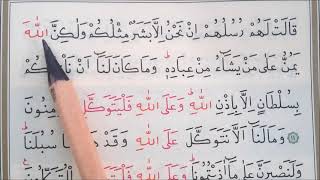 قَالَتْ لَهُمْ رُسُلُهُمْ إِنْ نَحْنُ إِلَّا بَشَرٌ مِثْلُكُمْ وَلَٰكِنَّ اللّٰهَ
يَمُنُّ عَلَىٰ مَنْ يَشَاءُ مِنْ عِبَادِهِ وَمَا كَانَ لَنَا أَنْ
بِسُلْطَانٍ إِلَّا بِإِذْنِ اللّٰهِ وَعَلَى اللّٰهِ فَلْيَتَوَكَّلِ
وَمَا لَنَا أَلَّا نَتَوَكَّلَ عَلَى اللّٰهِ وَقَدْ سُبُلَنَا
وَلَنَصْبِرَنَّ عَلَىٰ مَا آذَيْتُمُونَا وَعَلَى اللّٰهِ